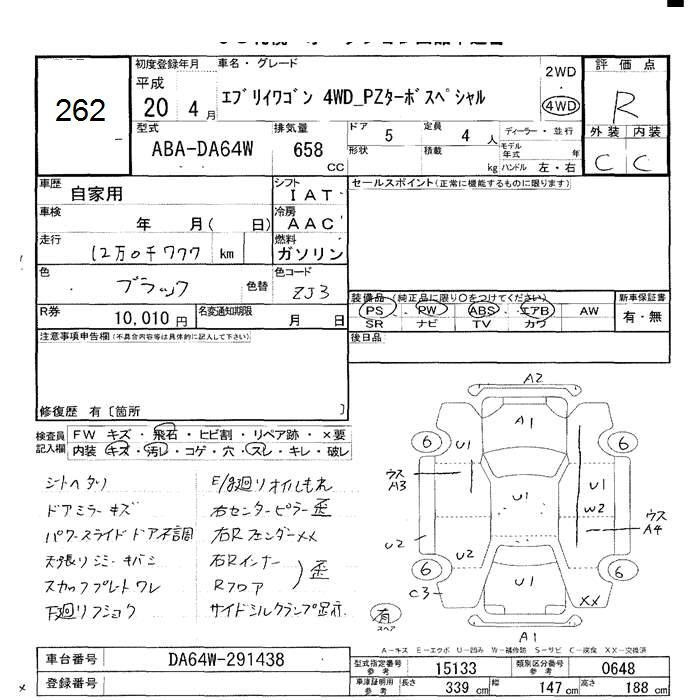 262
初度登録年月
平成
20 4 月
車名・グレード
エブリイワゴン 4WD_PZターボスペシャル
2WD
4WD
評価点
R
外装 内装
C C
型式
ABA-DA64W
排気量
658
CC
ドア 5 定員 4 人
形状 積載 kg
ディーラー・並行
モデル年式 年
ハンドル 左・右
車歴 自家用
シフト IAT
車検 年 月( 日)
冷房 AAC
走行 12万0千777 km
燃料 ガソリン
色 ブラック 色替
色コード ZJ3
R券 10,010 円
名変通知期限 月 日
セールスポイント(正常に機能するものに限ります)
装備品(純正品に限り○をつけてください)
PS PW ABS エアB AW
SR ナビ TV カワ
新車保証書
有・無
後日品
注意事項申告欄(不具合内容等は具体的に記入して下さい)
修復歴 有〔箇所 〕
検査員記入欄
FW キズ・飛石・ヒビ割・リペア跡・×要
内装 キズ・汚レ・コゲ・穴・スレ・キレ・破レ
シートヘタリ
ドアミラーキズ
パワースライドドア不調
天張リシミ キバミ
スカッフプレートワレ
下廻リフショク
E/G廻リオイルもれ
右センターピラー歪
右RフェンダーXX
右Rインナー
Rフロア
歪
サイドシルクランプ跡
A2
A1
6 6
U1
ウス
A3
U1
U1
W2
ウス
A4
U2
U2
6 6
C3
U1
XX
A1
有
スペア
A-キズ E-エクボ U-凹み W-補修跡 S-サビ C-腐食 XX-交換済
車台番号 DA64W-291438
登録番号
型式指定番号 参考 15133
類別区分番号 参考 0648
車庫証明用 参考 長さ 339 cm 幅 147 cm 高さ 188 cm